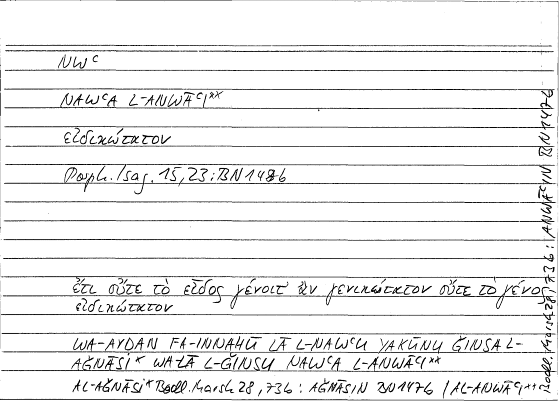 NWᶜ
NAWᶜA L-ANWĀᶜI**
εἰδικώτατον
Porph. Isag. 15,23: BN 1476
ἔτι οὔτε τὸ εἶδος γένοιτ' ἂν γενικώτατον οὔτε τὸ γένος
εἰδικώτατον
WA-AYḌAN FA-INNAHŪ LĀ L-NAWᶜU YAKŪNU ǦINSA L-
AǦNĀSI* WA-LĀ L-ǦINSU NAWᶜA L-ANWĀᶜI**
AL-AǦNĀSI* Bodl. Marsh 28, 73b: AǦNĀSIN BN 1476 / AL-ANWĀᶜI**
Bodl. Marsh 28, 73b: ANWĀᶜIN BN 1476